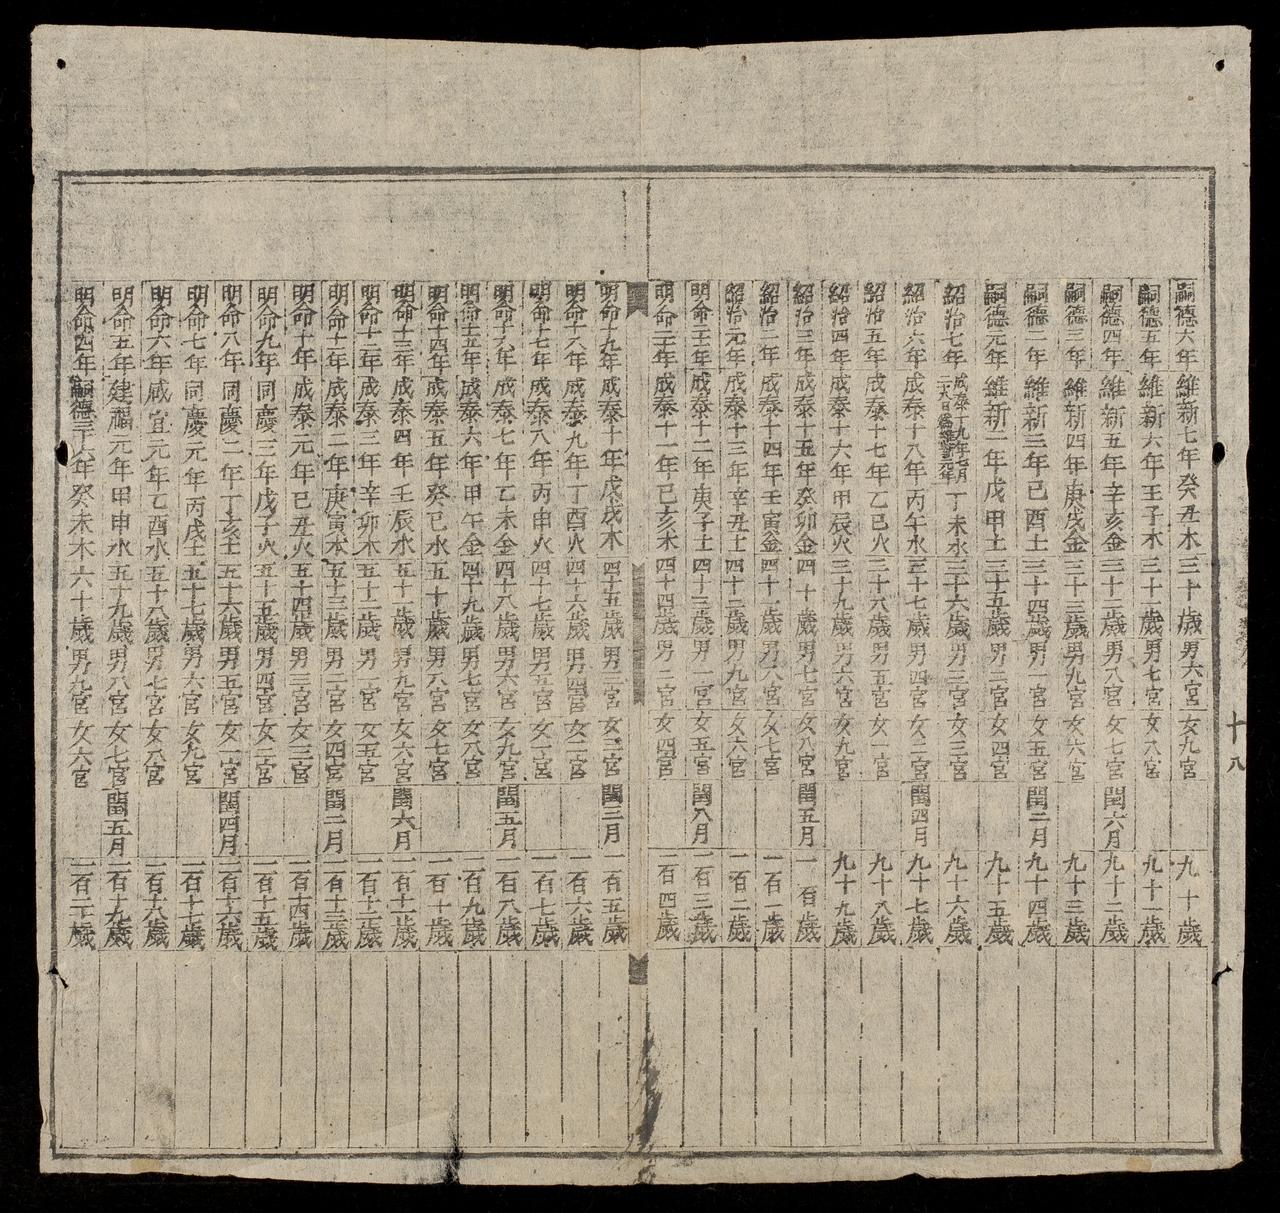 嗣德六年維新七年癸丑木三十歲男六宮女九宮九十歲
嗣德五年維新六年壬子木三十一歲男七宮女八宮九十一歲
嗣德四年維新五年辛亥金三十二歲男八宮女七宮閏六月九十二歲
嗣德三年維新四年庚戌金三十三歲男九宮女六宮九十三歲
嗣德二年維新三年己酉土三十四歲男一宮女五宮閏二月九十四歲
嗣德元年維新二年戊甲土三十五歲男二宮女四宮九十五歲
紹治七年成泰十九年七月二十八日為維新元年丁未水三十六歲男三宮女三宮九十六歲
紹治六年成泰十八年丙午水三十七歲男四宮女二宮閏四月九十七歲
紹治五年成泰十七年乙巳火三十八歲男五宮女一宮九十八歲
紹治四年成泰十六年甲辰火三十九歲男六宮女九宮九十九歲
紹治三年成泰十五年癸卯金四十歲男七宮女八宮閏五月一百歲
紹治二年成泰十四年壬寅金四十一歲男八宮女七宮一百一歲
紹治元年成泰十三年辛丑土四十二歲男九宮女六宮一百二歲
明命二十一年成泰十二年庚子土四十三歲男一宮女五宮閏八月一百三歲
明命二十年成泰十一年己亥木四十四歲男二宮女四宮一百四歲
明命十九年成泰十年戊戌木四十五歲男三宮女三宮閏三月一百五歲
明命十八年成泰九年丁酉火四十六歲男四宮女二宮一百六歲
明命十七年成泰八年丙申火四十七歲男五宮女一宮一百七歲
明命十六年成泰七年乙未金四十八歲男六宮女九宮閏五月一百八歲
明命十五年成泰六年甲午金四十九歲男七宮女八宮一百九歲
明命十四年成泰五年癸巳水五十歲男八宮女七宮一百十歲
明命十三年成泰四年壬辰水五十一歲男九宮女六宮閏六月一百十一歲
明命十二年成泰三年辛卯木五十二歲男一宮女五宮一百十二歲
明命十一年成泰二年庚寅木五十三歲男二宮女四宮閏二月一百十三歲
明命十年成泰元年己丑火五十四歲男三宮女三宮一百十四歲
明命九年同慶三年戊子火五十五歲男四宮女二宮一百十五歲
明命八年同慶二年丁亥土五十六歲男五宮女一宮閏四月一百十六歲
明命七年同慶元年丙戌土五十七歲男六宮女九宮一百十七歲
明命六年咸宜元年乙酉水五十八歲男七宮女八宮一百十八歲
明命五年建福元年甲申水五十九歲男八宮女七宮閏五月一百十九歲
明命四年嗣德三十六年癸未木六十歲男九宮女六宮一百二十歲
十八